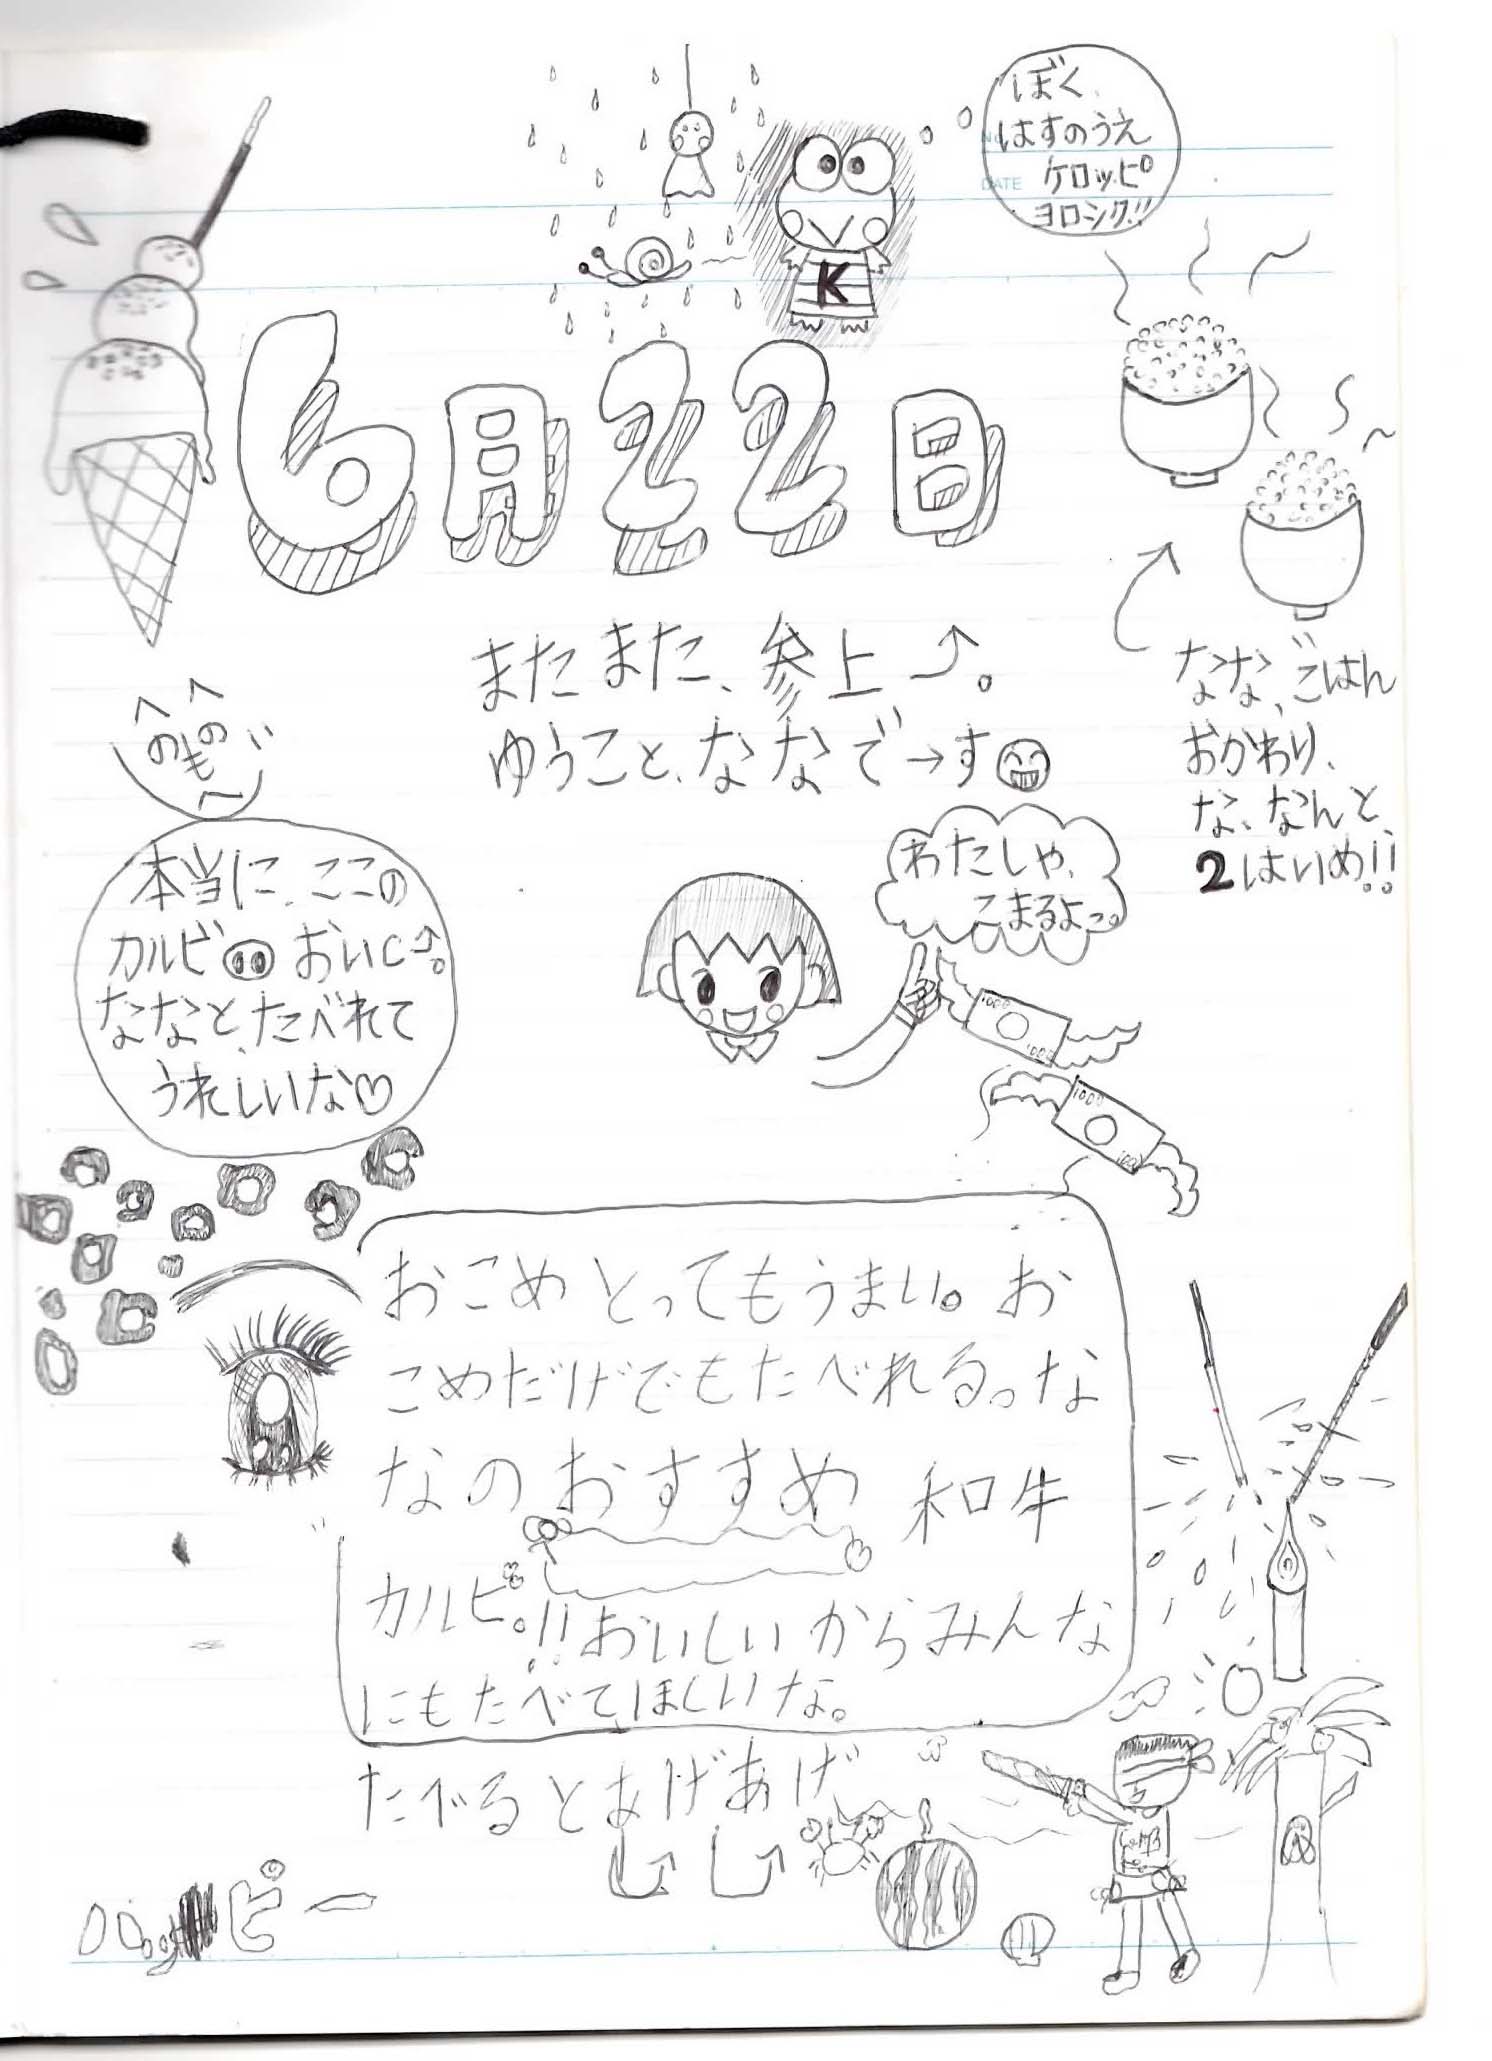 ぼく、
はすのうえ
ケロッピ
ヨロシク!!
No
DATE
K
6月22日
またまた、参上⤴。
ゆうこと、ななで→す
なな、ごはん
おかわり、
な、なんと
2はいめ!!
へへ
のの
も
へ
じ
本当に、ここの
カルビ おいし⤴。
ななと、たべれて
うれしいな♡
わたしゃ、
こまるよっ。
1000
1000
1000
1000
おこめとってもうまい。お
こめだけでもたべれる。な
なのおすすめ 和牛
カルビ。!!おいしいからみんな
にもたべてほしいな。
たべるとあげあげ
ピー